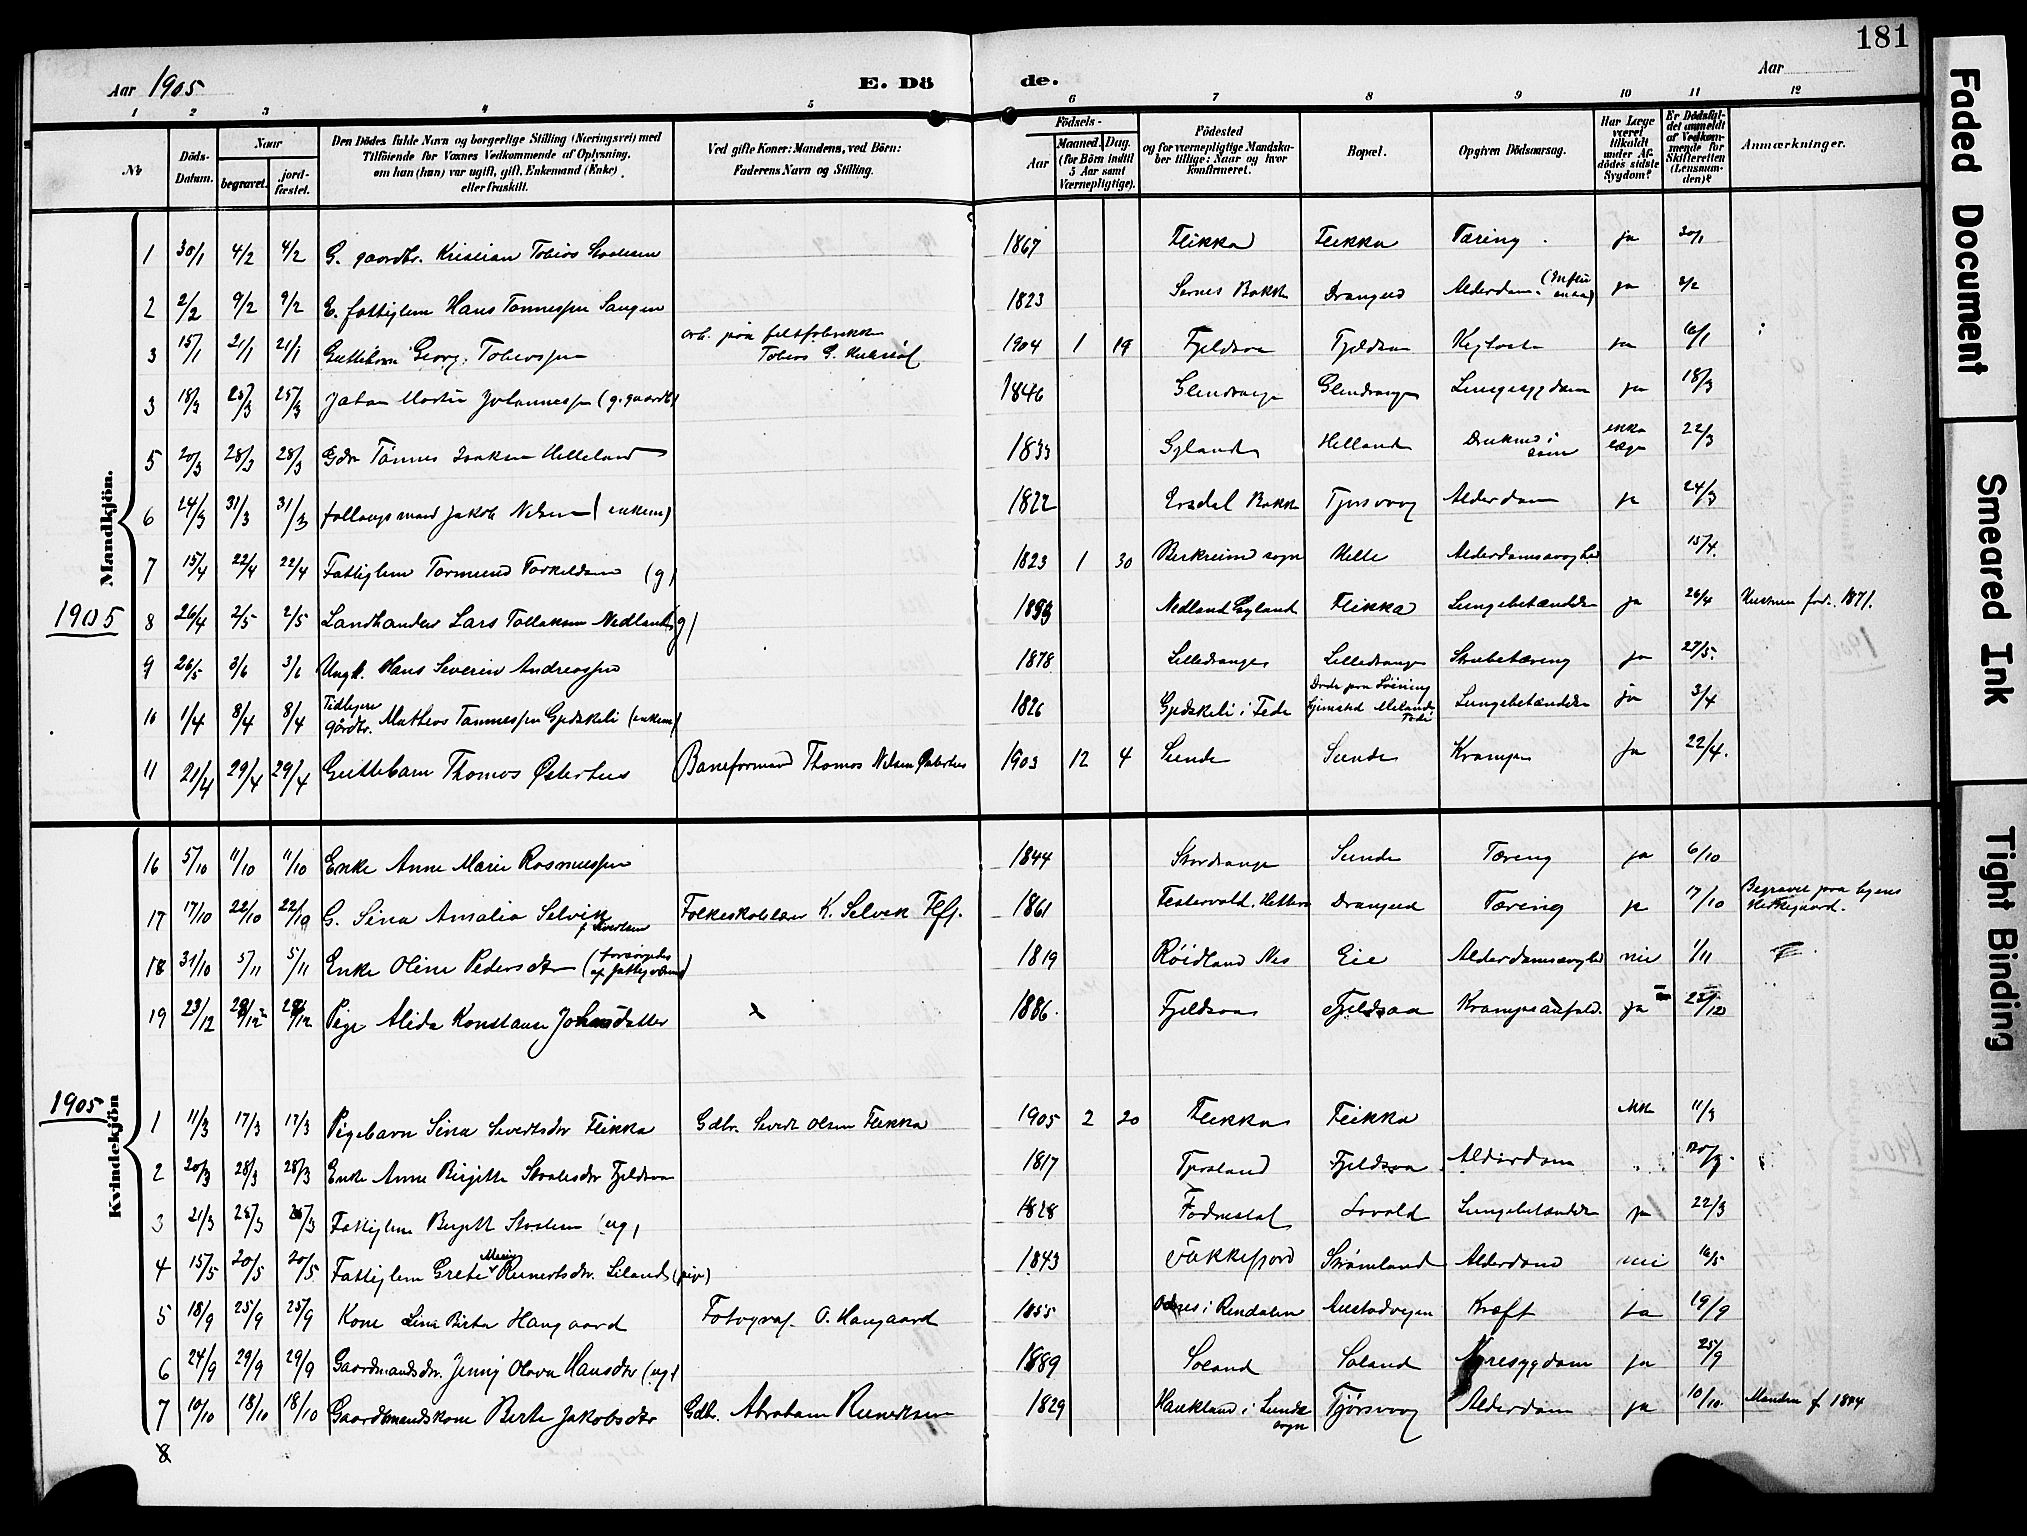 181
Aar 1905
E. Dö de.
Aar
1 2 3 4 5 6 7 8 9 10 11 12
No
Döds-Datum.
Naar
begravet.
jord-fæstet.
Den Dödes fulde Navn og borgerlige Stilling (Næringsvei) med
Tilföiende for Voxnes Vedkommende af Oplysning,
om han (hun) var ugift, gift, Enkemand (Enke)
eller fraskilt.
Ved gifte Koner: Mandens, ved Börn:
Faderens Navn og Stilling.
Födsels-
Aar
Maaned. Dag.
(for Börn indtil
5 Aar samt
Værnepligtige).
Födested
og for værnepligtige Mandska-
ber tillige: Naar og hvor
Konfirmeret.
Bopæl.
Opgiven Dödsaarsag.
Har Læge
været
tilkaldt
under Af-
dödes sidste
Sygdom?
Er Dödsfal-
det anmeldt
af Vedkom-
mende for
Skifteretten
(Lensman-
den)?
Anmærkninger.
Mandkjön.
1905
1 30/1 4/2 4/2 G. gaardbr. Kristian Tobias Svalesen 1867 Flikka Flikka Tæring ja 30/1
2 2/2 9/2 9/2 Fattiglem Hans Tønnessen 1823 Drangeid Alderdom ja 2/2
3 15/1 21/1 21/1 Guttebarn Georg Tobiassen Tobias 1904 1 19 Fjeldsaa Fjeldsaa ja 16/1
3 18/3 25/3 25/3 Johan Martin Johannessen (g. gaardb) 1846 Glendrange Glendrange Lungesygdom ja 18/3
5 20/3 28/3 28/3 Gdbr Tønnes Isaksen Helleland 1833 Gyland Helland Druknet i ikke læge 22/3
6 24/3 31/3 31/3 Jakob Nilsen (enkem) 1822 Ersdal Bakke Tjørsvaag Alderdom ja 24/3
7 15/4 22/4 22/4 Fattiglem Tormund Torkeldsen (g) 1823 1 30 Birkreim sogn Helle Alderdomssvaghed 15/4.
8 26/4 2/5 2/5 Landhandler Lars Tollaksen Nedland (g) Nedland Gyland Flikka Lungebetændelse ja 26/4 Hustruen fød. 1871.
9 26/5 3/6 3/6 Ungk. Hans Severin Andreassen 1878 Lilledrange Lilledrange Strubetæring ja 27/5.
10 1/4 8/4 8/4 Tidligere gårdbr. Mathias Tønnessen Gjedskeli (enkem) 1826 Gjedskeli i Feda Døde paa Lungebetændelse ja 3/4
11 21/4 29/4 29/4 Guttebarn Thomas Østerhus Baneformand Thomas Nilsen Østerhus 1903 12 4 Sunde Sunde Krampe ja 22/4.
16 5/10 11/10 11/10 Enke Anne Marie Rasmussen 1844 Stordrange Sunde Tæring ja 6/10
17 17/10 22/10 22/10 G. Sina Amalia Selvik f. Sivertsen Folkeskolelærer K. Selvik Flf. 1861 Drangeid Tæring ja 17/10 Begravet paa byens Kirkegaard.
18 31/10 5/11 5/11 Enke Oline Pedersdtr (forsørgedes af fattigvæsenet) 1819 Røidland Nes Eie Alderdomssvaghed nei 1/11
19 23/12 29/12 29/12 Pige Alida Konstanse Johansdatter 1886. Fjeldsaa Fjeldsaa Krampeanfald. ja 23/12
1905
Kvindekjön
1 11/3 17/3 17/3 Pigebarn Sina Sivertsdtr Flikka Gdbr. Sivert Olsen Flikka 1905 2 20 Flikka Flikka ikke 11/3
2 20/3 28/3 28/3 Enke Anne Birgitte Svalesdtr Fjeldsaa 1817 Fjeldsaa Alderdom 20/3.
3 21/3 28/3 Fattiglem Birgitte Svalesen (ug) 1828 Lavold Lungebetændelse ja 22/3
4 15/5 20/5 20/5 Fattiglem Grete Marie Reinertsdtr. Liland (pige) 1843 Fækkefjord Strømland Alderdom nei 16/5
5 18/9 25/9 25/9 Kone Lina Birta Haugaard Fotograf. O. Haugaard 1855 Odnes i Rendalen Austadvegen Kræft ja 19/9
6 24/9 29/9 29/9 Gaardmandsdtr. Jenny Olava Hansdtr (ug) 1889 Loland Loland Nyresygdom ja 25/9
7 10/10 18/10 18/10 Gaardmandskone Berte Jakobsdtr Gdbr. Abraham Reinertsen 1829 Haukland i Lunde sogn Tjørsvaag Alderdom ja 10/10. Manden f. 1824
8
Faded Document
Smeared Ink
Tight Binding